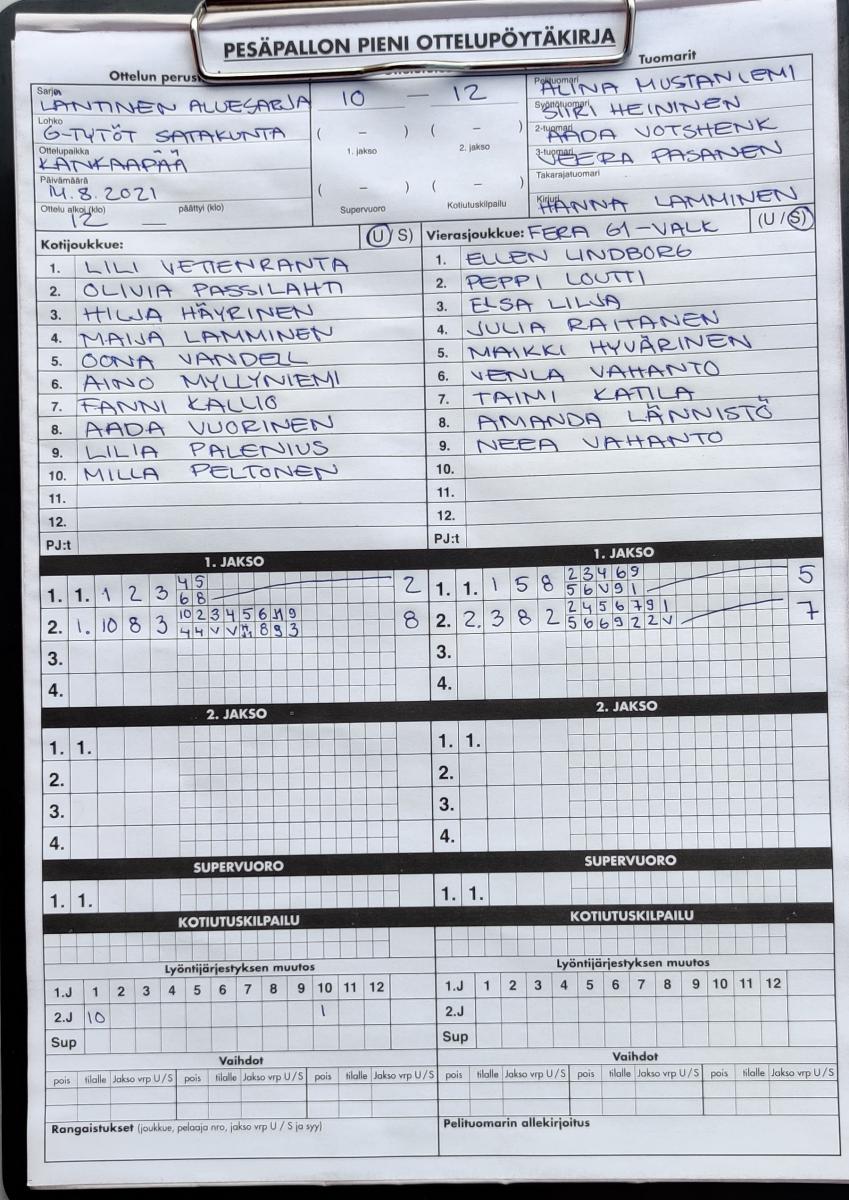 PESÄPALLON PIENI OTTELUPÖYTÄKIRJA
Ottelun perust
Tuomarit
Sarja LÄNTINEN ALUESARJA
Lohko G-TYTÖT SATAKUNTA
Ottelupaikka KANKAAPÄÄ
Päivämäärä 14.8.2021
Ottelu alkoi (klo) 12 päättyi (klo) —
10 — 12
( – ) ( – )
1. jakso 2. jakso
( – ) ( – )
Supervuoro Kotiutuskilpailu
Pelituomari ALINA MUSTANIEMI
Syöttötuomari SIIRI HEININEN
2-tuomari AADA VOTSHENK
3-tuomari VEERA PASANEN
Takarajatuomari
Kirjuri HANNA LAMMINEN
Kotijoukkue: (U/S)
1. LILI VETIENRANTA
2. OLIVIA PASSILAHTI
3. HILJA HÄYRINEN
4. MAIJA LAMMINEN
5. OONA VANDELL
6. AINO MYLLYNIEMI
7. FANNI KALLIO
8. AADA VUORINEN
9. LILIA PALENIUS
10. MILLA PELTONEN
11.
12.
PJ:t
Vierasjoukkue: FERA G1-VALK (U/S)
1. ELLEN LINDBORG
2. PEPPI LOUTTI
3. ELSA LILJA
4. JULIA RAITANEN
5. MAIKKI HYVÄRINEN
6. VENLA VAHANTO
7. TAIMI KATILA
8. AMANDA LÄNNISTÖ
9. NEEA VAHANTO
10.
11.
12.
PJ:t
1. JAKSO
1. 1. 1 2 3 4 5 2
6 8
2. 1. 10 8 3 10 2 3 4 5 6 9 8
4 4 V V 8 9 3
3.
4.
1. JAKSO
1. 1. 1 5 8 2 3 4 6 9 5
5 6 V 9 1
2. 2. 3 8 2 2 4 5 6 7 9 1 7
5 6 6 9 2 2 V
3.
4.
2. JAKSO
1. 1.
2.
3.
4.
2. JAKSO
1. 1.
2.
3.
4.
SUPERVUORO
1. 1.
SUPERVUORO
1. 1.
KOTIUTUSKILPAILU
KOTIUTUSKILPAILU
Lyöntijärjestyksen muutos
1.J 1 2 3 4 5 6 7 8 9 10 11 12
2.J 10 1
Sup
Lyöntijärjestyksen muutos
1.J 1 2 3 4 5 6 7 8 9 10 11 12
2.J
Sup
Vaihdot
pois tilalle Jakso vrp U/S pois tilalle Jakso vrp U/S pois tilalle Jakso vrp U/S
Vaihdot
pois tilalle Jakso vrp U/S pois tilalle Jakso vrp U/S pois tilalle Jakso vrp U/S
Rangaistukset (joukkue, pelaaja nro, jakso vrp U / S ja syy)
Pelituomarin allekirjoitus